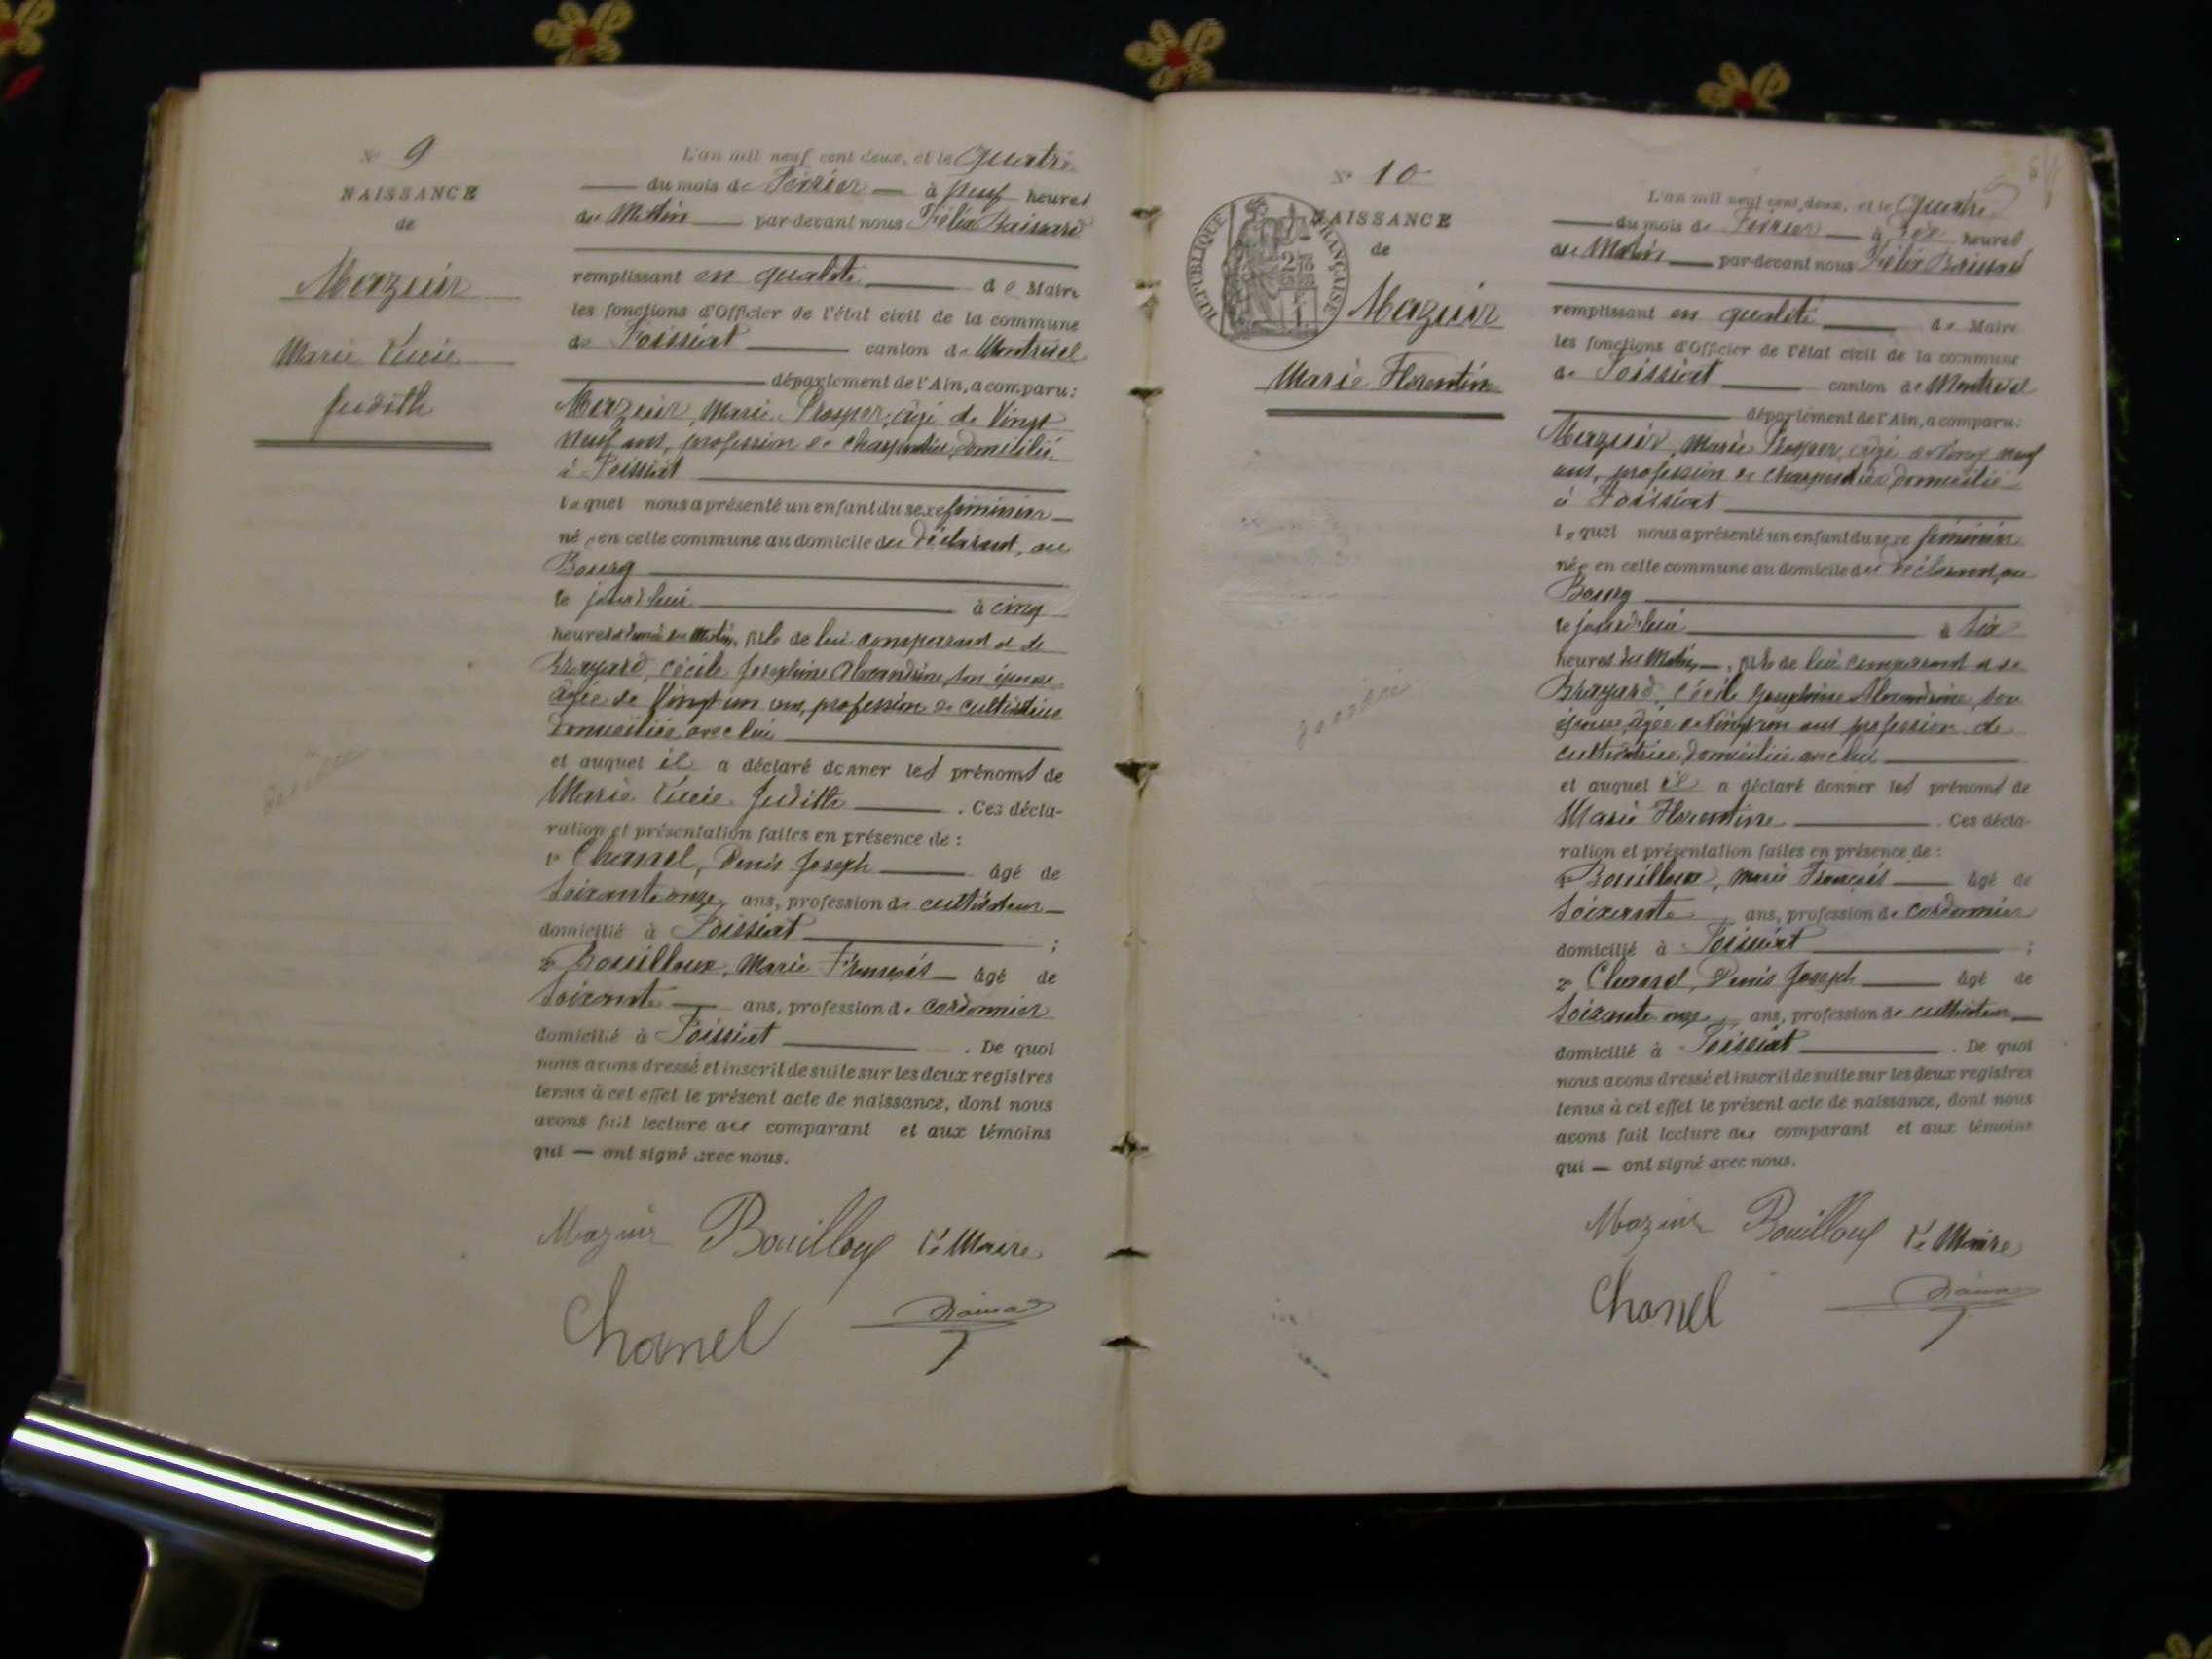 N° 9
NAISSANCE
de
Mazuir
Marie Lucie
Judith
L'an mil neuf cent deux, et le quatre
du mois de Février à neuf heures
du Matin par-devant nous Félix Baissard
remplissant en qualité de Maire
les fonctions d'Officier de l'état civil de la commune
de Foissiat canton de Montrevel
département de l'Ain, a comparu:
Mazuir, Marie Prosper, âgé de Vingt
neuf ans, profession de charpentier, domicilié
à Foissiat
lequel nous a présenté un enfant du sexe féminin
née en cette commune au domicile du déclarant, au
Bourg
le jourd'hui à cinq
heures et demie du Matin, fille de lui comparant et de
Brayard, Cécile Joséphine Alexandrine, son épouse
âgée de Vingt un ans, profession de cultivatrice
domiciliée avec lui
et auquel il a déclaré donner les prénoms de
Marie Lucie Judith . Ces décla-
ration et présentation faites en présence de :
1° Chanel, Denis Joseph âgé de
soixante onze ans, profession de cultivateur
domicilié à Foissiat ;
2° Bouilloux, Marie François âgé de
soixante ans, profession de cordonnier
domicilié à Foissiat . De quoi
nous avons dressé et inscrit de suite sur les deux registres
tenus à cet effet le présent acte de naissance, dont nous
avons fait lecture au comparant et aux témoins
qui — ont signé avec nous.
Mazuir Bouilloux Le Maire
Chanel
N° 10
NAISSANCE
de
RÉPUBLIQUE FRANÇAISE
Mazuir
Marie Florentine
L'an mil neuf cent deux, et le quatre
du mois de Février à heures
du Matin par-devant nous Félix Baissard
remplissant en qualité de Maire
les fonctions d'Officier de l'état civil de la commune
de Foissiat canton de Montrevel
département de l'Ain, a comparu:
Mazuir, Marie Prosper, âgé de vingt neuf
ans, profession de charpentier domicilié
à Foissiat
lequel nous a présenté un enfant du sexe féminin
née en cette commune au domicile du déclarant, au
Bourg
le jourd'hui à six
heures du Matin, fille de lui comparant et de
Brayard, Cécile Joséphine Alexandrine, son
épouse, âgée de Vingt un ans profession de
cultivatrice, domiciliée avec lui
et auquel il a déclaré donner les prénoms de
Marie Florentine . Ces décla-
ration et présentation faites en présence de :
1° Bouilloux, Marie François âgé de
soixante ans, profession de cordonnier
domicilié à Foissiat ;
2° Chanel, Denis Joseph âgé de
soixante onze ans, profession de cultivateur
domicilié à Foissiat . De quoi
nous avons dressé et inscrit de suite sur les deux registres
tenus à cet effet le présent acte de naissance, dont nous
avons fait lecture au comparant et aux témoins
qui — ont signé avec nous.
Mazuir Bouilloux Le Maire
Chanel